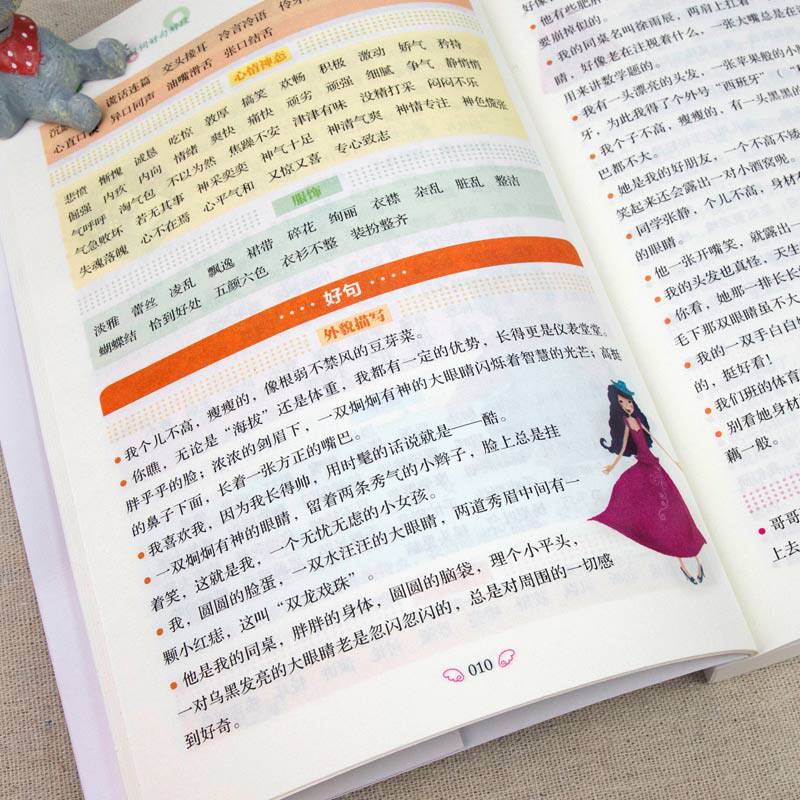 好词好句好段
谎话连篇 交头接耳 冷言冷语
心直口快 异口同声 油嘴滑舌 张口结舌
心情神态
悲愤 惭愧 诚恳 吃惊 敦厚 搞笑 欢畅 积极 激动 娇气 矜持
倔强 内疚 内向 情绪 爽快 痛快 顽劣 顽强 细腻 争气 静悄悄
气呼呼 淘气包 不以为然 焦躁不安 津津有味 没精打采 闷闷不乐
气急败坏 若无其事 神采奕奕 神气十足 神清气爽 神情专注 神色慌张
失魂落魄 心不在焉 心平气和 又惊又喜 专心致志
服饰
淡雅 蕾丝 凌乱 飘逸 裙带 碎花 绚丽 衣襟 杂乱 脏乱 整洁
蝴蝶结 恰到好处 五颜六色 衣衫不整 装扮整齐
好句
外貌描写
我个儿不高，瘦瘦的，像根弱不禁风的豆芽菜。
你瞧，无论是“海拔”还是体重，我都有一定的优势，长得更是仪表堂堂。
胖乎乎的脸；浓浓的剑眉下，一双炯炯有神的大眼睛闪烁着智慧的光芒；高挺
的鼻子下面，长着一张方正的嘴巴。
我喜欢我，因为我长得帅，用时髦的话说就是——酷。
一双炯炯有神的眼睛，留着两条秀气的小辫子，脸上总是挂
着笑，这就是我，一个无忧无虑的小女孩。
我，圆圆的脸蛋，一双水汪汪的大眼睛，两道秀眉中间有一
颗小红痣，这叫“双龙戏珠”。
他是我的同桌，胖胖的身体，圆圆的脑袋，理个小平头，
一对乌黑发亮的大眼睛老是忽闪忽闪的，总是对周围的一切感
到好奇。
010
他有些肥胖
要崩掉似的。
我的同桌名叫徐雨辰，两肩上扛着
睛，好像老在注视着什么，一张大嘴总是在
用来讲数学题的。
我有一头漂亮的头发，一张苹果般的小
牙，为此我得了个外号“西班牙”（“
我个子不高，瘦瘦的，有一头黑黑的
巴都不大。
她是我的好朋友，一个不高不矮
笑起来还会露出一对小酒窝呢。
同学张静，个儿不高，身材
的眼睛。
他一张开嘴笑，就露出一
我的头发也真怪，天生
你看，她那一排长长
毛下那双眼睛虽不大
我的一双手白白
的，挺好看！
我们班的体育
别看她身材
藕一般。
哥哥
上去